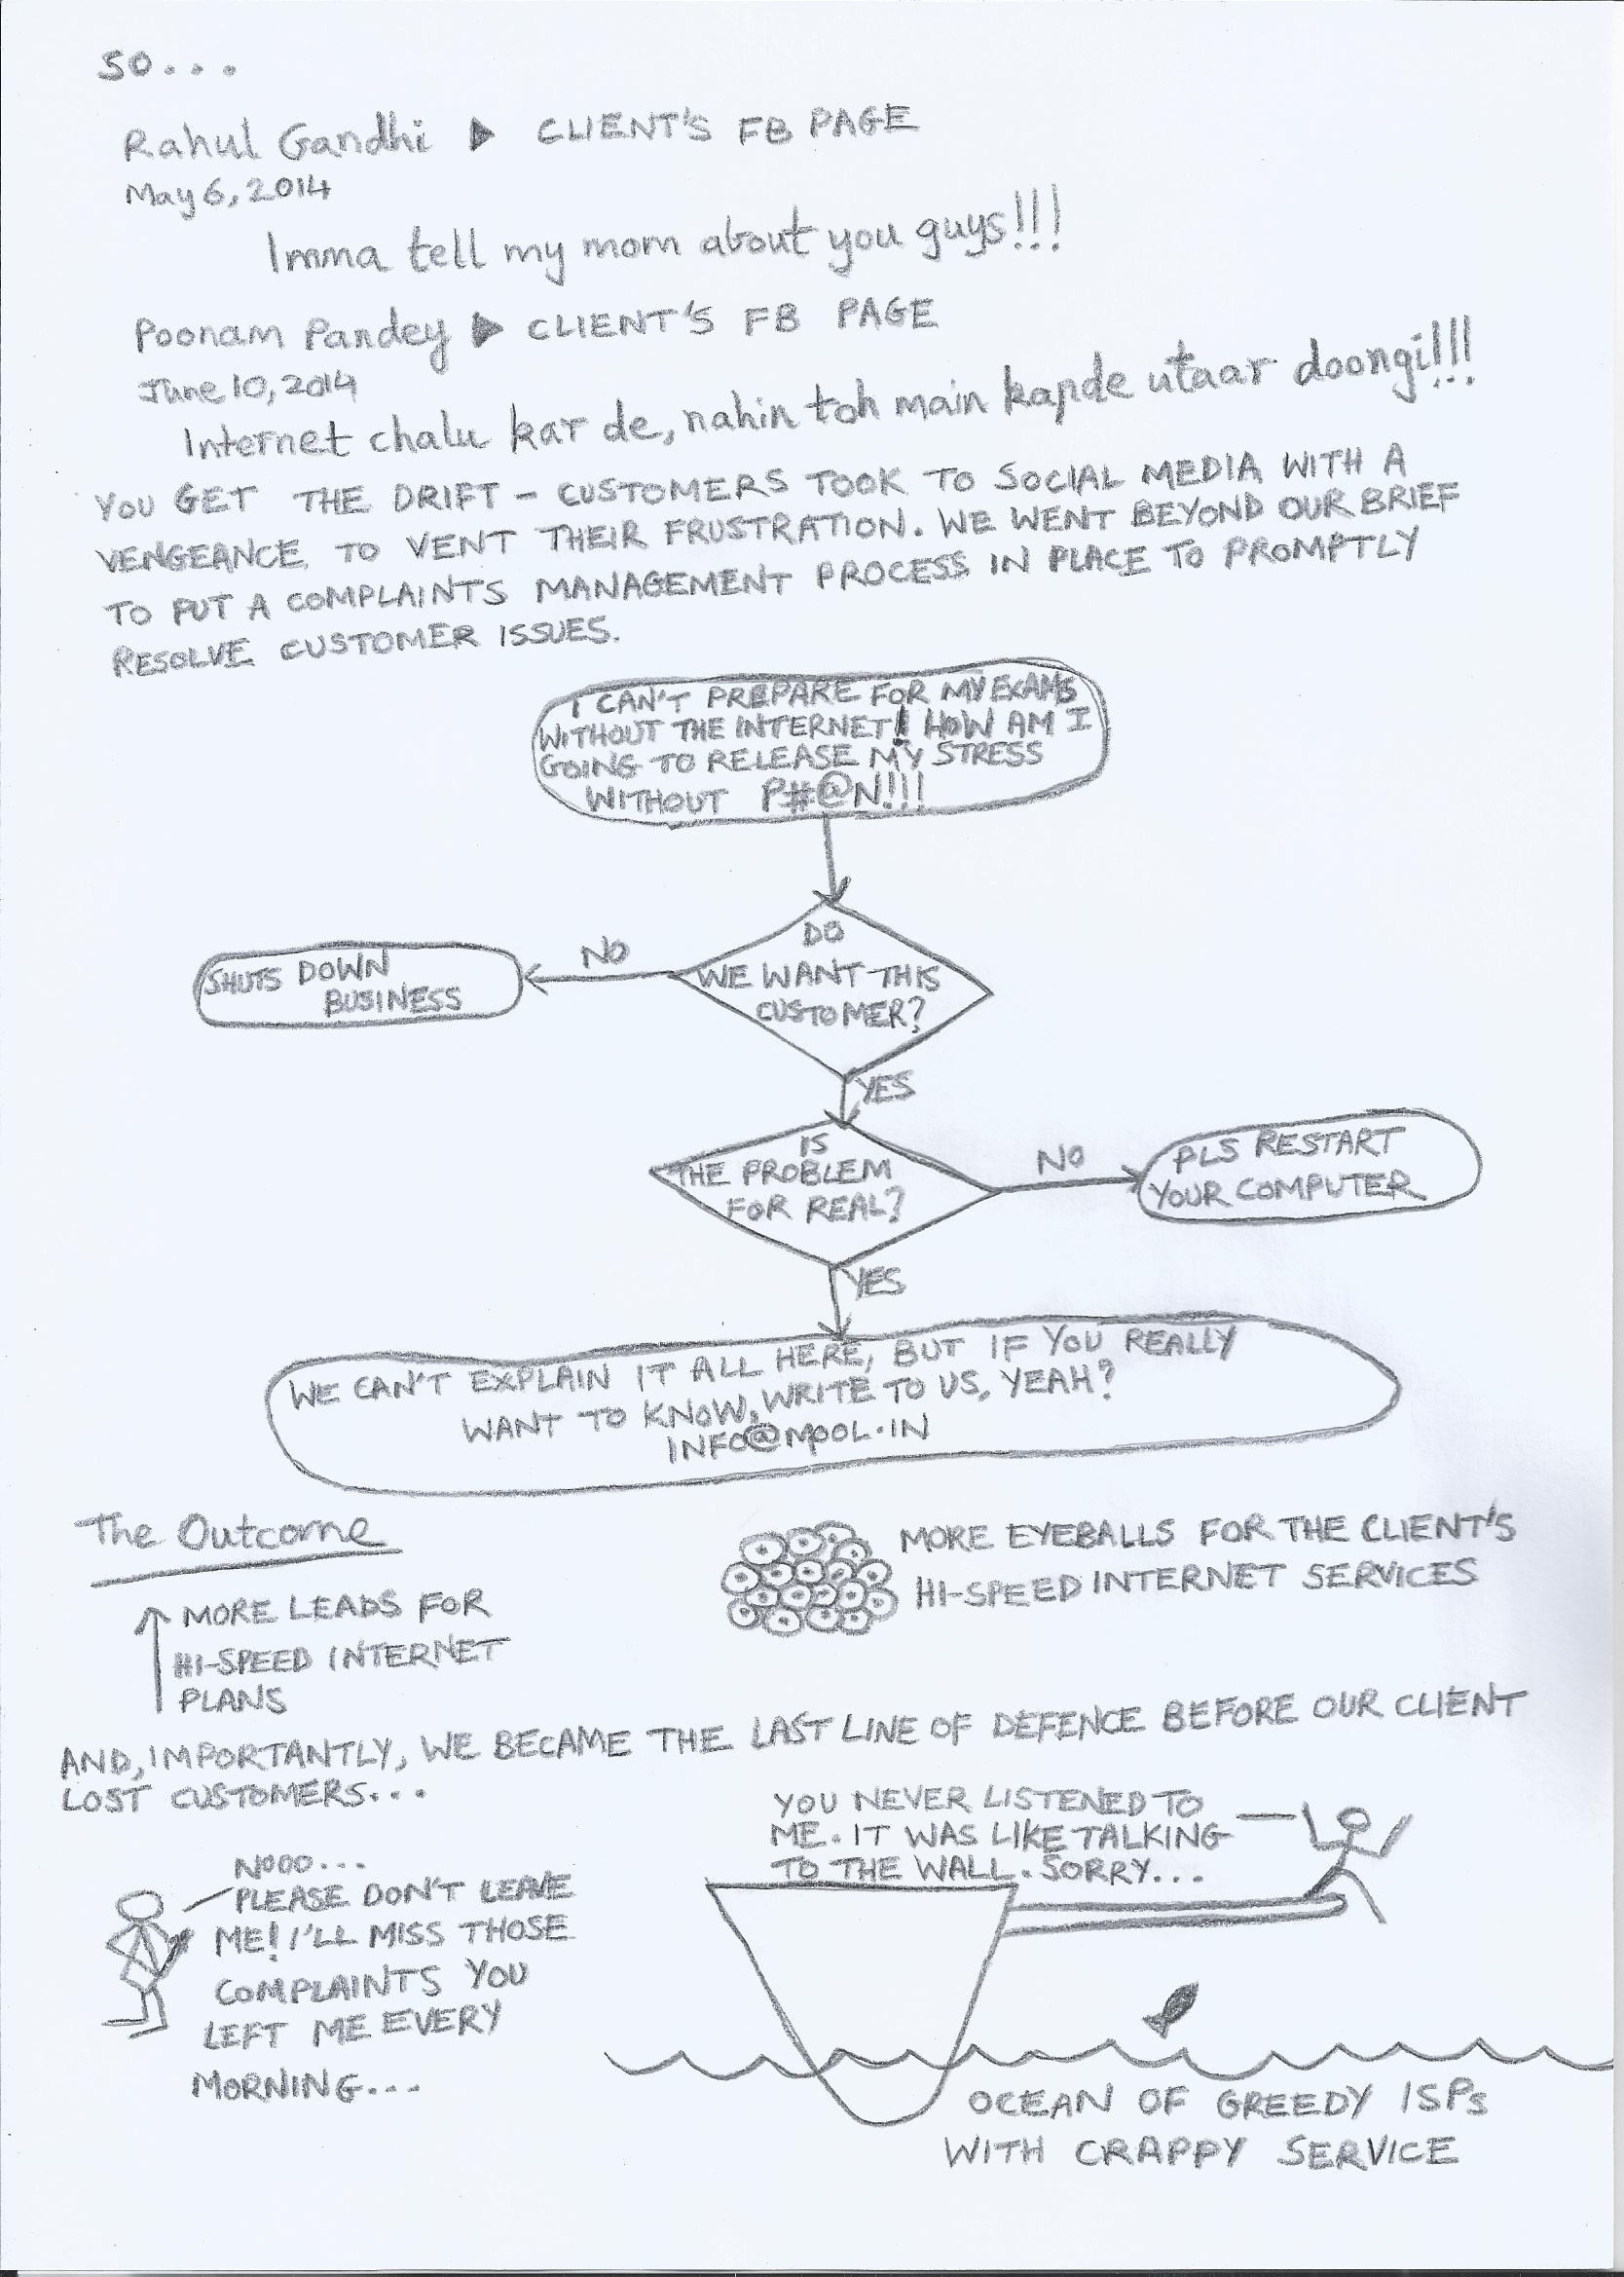 SO...
Rahul Gandhi ▶ CLIENT'S FB PAGE
May 6, 2014
Imma tell my mom about you guys!!!
Poonam Pandey ▶ CLIENT'S FB PAGE
June 10, 2014
Internet chalu kar de, nahin toh main kapde utaar doongi!!!
YOU GET THE DRIFT - CUSTOMERS TOOK TO SOCIAL MEDIA WITH A
VENGEANCE TO VENT THEIR FRUSTRATION. WE WENT BEYOND OUR BRIEF
TO PUT A COMPLAINTS MANAGEMENT PROCESS IN PLACE TO PROMPTLY
RESOLVE CUSTOMER ISSUES.
I CAN'T PREPARE FOR MY EXAMS
WITHOUT THE INTERNET! HOW AM I
GOING TO RELEASE MY STRESS
WITHOUT P#@N!!!
DO
WE WANT THIS
CUSTOMER?
NO
SHUTS DOWN
BUSINESS
YES
IS
THE PROBLEM
FOR REAL?
NO
PLS RESTART
YOUR COMPUTER
YES
WE CAN'T EXPLAIN IT ALL HERE, BUT IF YOU REALLY
WANT TO KNOW, WRITE TO US, YEAH?
INFO@MOOL.IN
The Outcome
MORE LEADS FOR
HI-SPEED INTERNET
PLANS
MORE EYEBALLS FOR THE CLIENT'S
HI-SPEED INTERNET SERVICES
AND, IMPORTANTLY, WE BECAME THE LAST LINE OF DEFENCE BEFORE OUR CLIENT
LOST CUSTOMERS...
NOOO...
PLEASE DON'T LEAVE
ME! I'LL MISS THOSE
COMPLAINTS YOU
LEFT ME EVERY
MORNING...
YOU NEVER LISTENED TO
ME. IT WAS LIKE TALKING
TO THE WALL. SORRY...
OCEAN OF GREEDY ISPs
WITH CRAPPY SERVICE